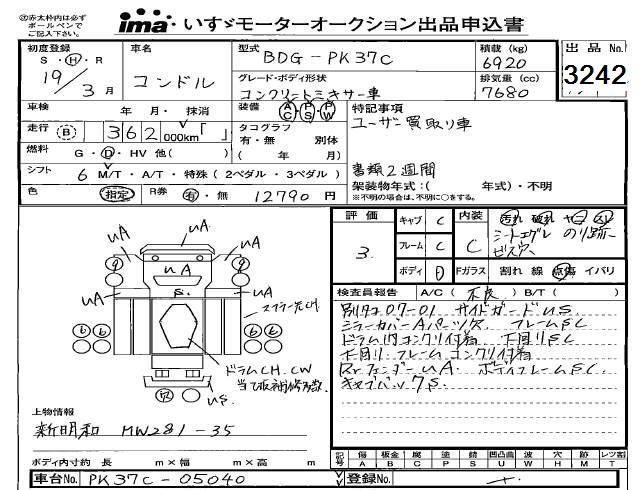 ㊟赤太枠内は必ず
ボールペンで
ご記入下さい。
ima いすゞモーターオークション出品申込書
初度登録
S・H・R
19/3月
車名
コンドル
型式
BDG-PK37C
グレード・ボディ形状
コンクリートミキサー車
積載 (kg)
6920
排気量 (cc)
7680
出品No.
3242
車検 年 月・ 抹消
装備 A/C P/S P/W
特記事項
ユーザー買取り車
走行 B 362 000km「 」
タコグラフ
有・無 別体
( 年 月)
燃料 G・D・HV 他( )
シフト 6 M/T・A/T・特殊(2ペダル・3ペダル)
書類2週間
架装物年式:( 年式)・不明
※不明の場合は、不明に○をする。
色 指定 R券 有・無 12790 円
評価
3
キャブ C
フレーム C
ボディ D
内装
C
汚れ 破れ ヤコ スレ
シートエグレ のり跡
ビス穴
Fガラス 割れ 線 点傷 イバリ
検査員報告 A/C(不良) B/T( )
別タコ07-01 サイドガードUS
ミラーカバーAパーツ欠 フレームSC
ドラム内コンクリ付着 下回りSC
下回り フレームコンクリ付着
RrフェンダーUA ボディフレームSC
キャブバック S
UA UA
9 9
UA
UA S. UA
6 6 6 6
ドラムCH、CW
当て板補修多数
US
上物情報
新明和 MW281-35
ボディ内寸約 長 m×幅 m×高 m
記号 傷 板金 腐 塗 錆 凹凸曲 波 穴 跡 レツ割
A B C P S U W H M T
車台No. PK37C-05040
登録No.